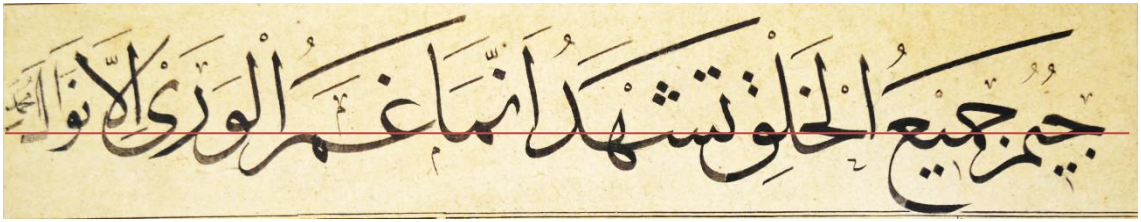 جيمٌ جَميعُ الْخَلْقِ تَشْهَدُ اَنَّمَا غَمَرُ الْوَرٰى اِلَّا نَوَالُ مُحَمَّد